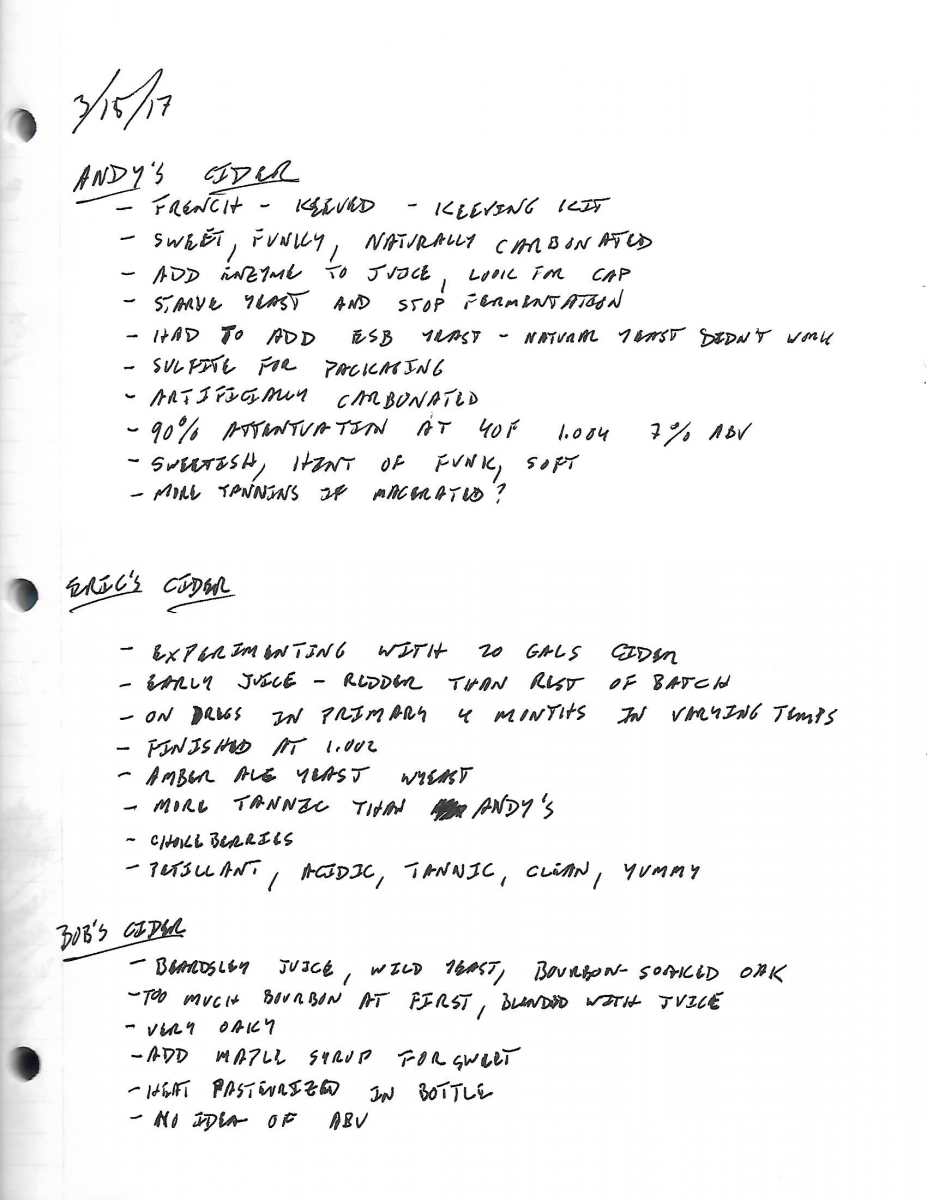 3/15/17
ANDY'S CIDER
- FRENCH - KEEVED - KEEVING KIT
- SWEET, FUNKY, NATURALLY CARBONATED
- ADD ENZYME TO JUICE, LOOK FOR CAP
- STARVE YEAST AND STOP FERMENTATION
- HAD TO ADD ESB YEAST - NATURAL YEAST DIDN'T WORK
- SULFITE FOR PACKAGING
- ARTIFICIALLY CARBONATED
- 90% ATTENTUATION AT 40F 1.004 7% ABV
- SWEETISH, HINT OF FUNK, SOFT
- MORE TANNINS IF MACERATED?
ERIC'S CIDER
- EXPERIMENTING WITH 20 GALS CIDER
- EARLY JUICE - REDDER THAN REST OF BATCH
- ON DREGS IN PRIMARY 4 MONTHS IN VARYING TEMPS
- FINISHED AT 1.002
- AMBER ALE YEAST WYEAST
- MORE TANNIC THAN ANDY'S
- CHOKEBERRIES
- PETILLANT, ACIDIC, TANNIC, CLEAN, YUMMY
BOB'S CIDER
- BEARDSLEY JUICE, WILD YEAST, BOURBON-SOAKED OAK
- TOO MUCH BOURBON AT FIRST, BLENDED WITH JUICE
- VERY OAKY
- ADD MAPLE SYRUP FOR SWEET
- HEAT PASTEURIZED IN BOTTLE
- NO IDEA OF ABV